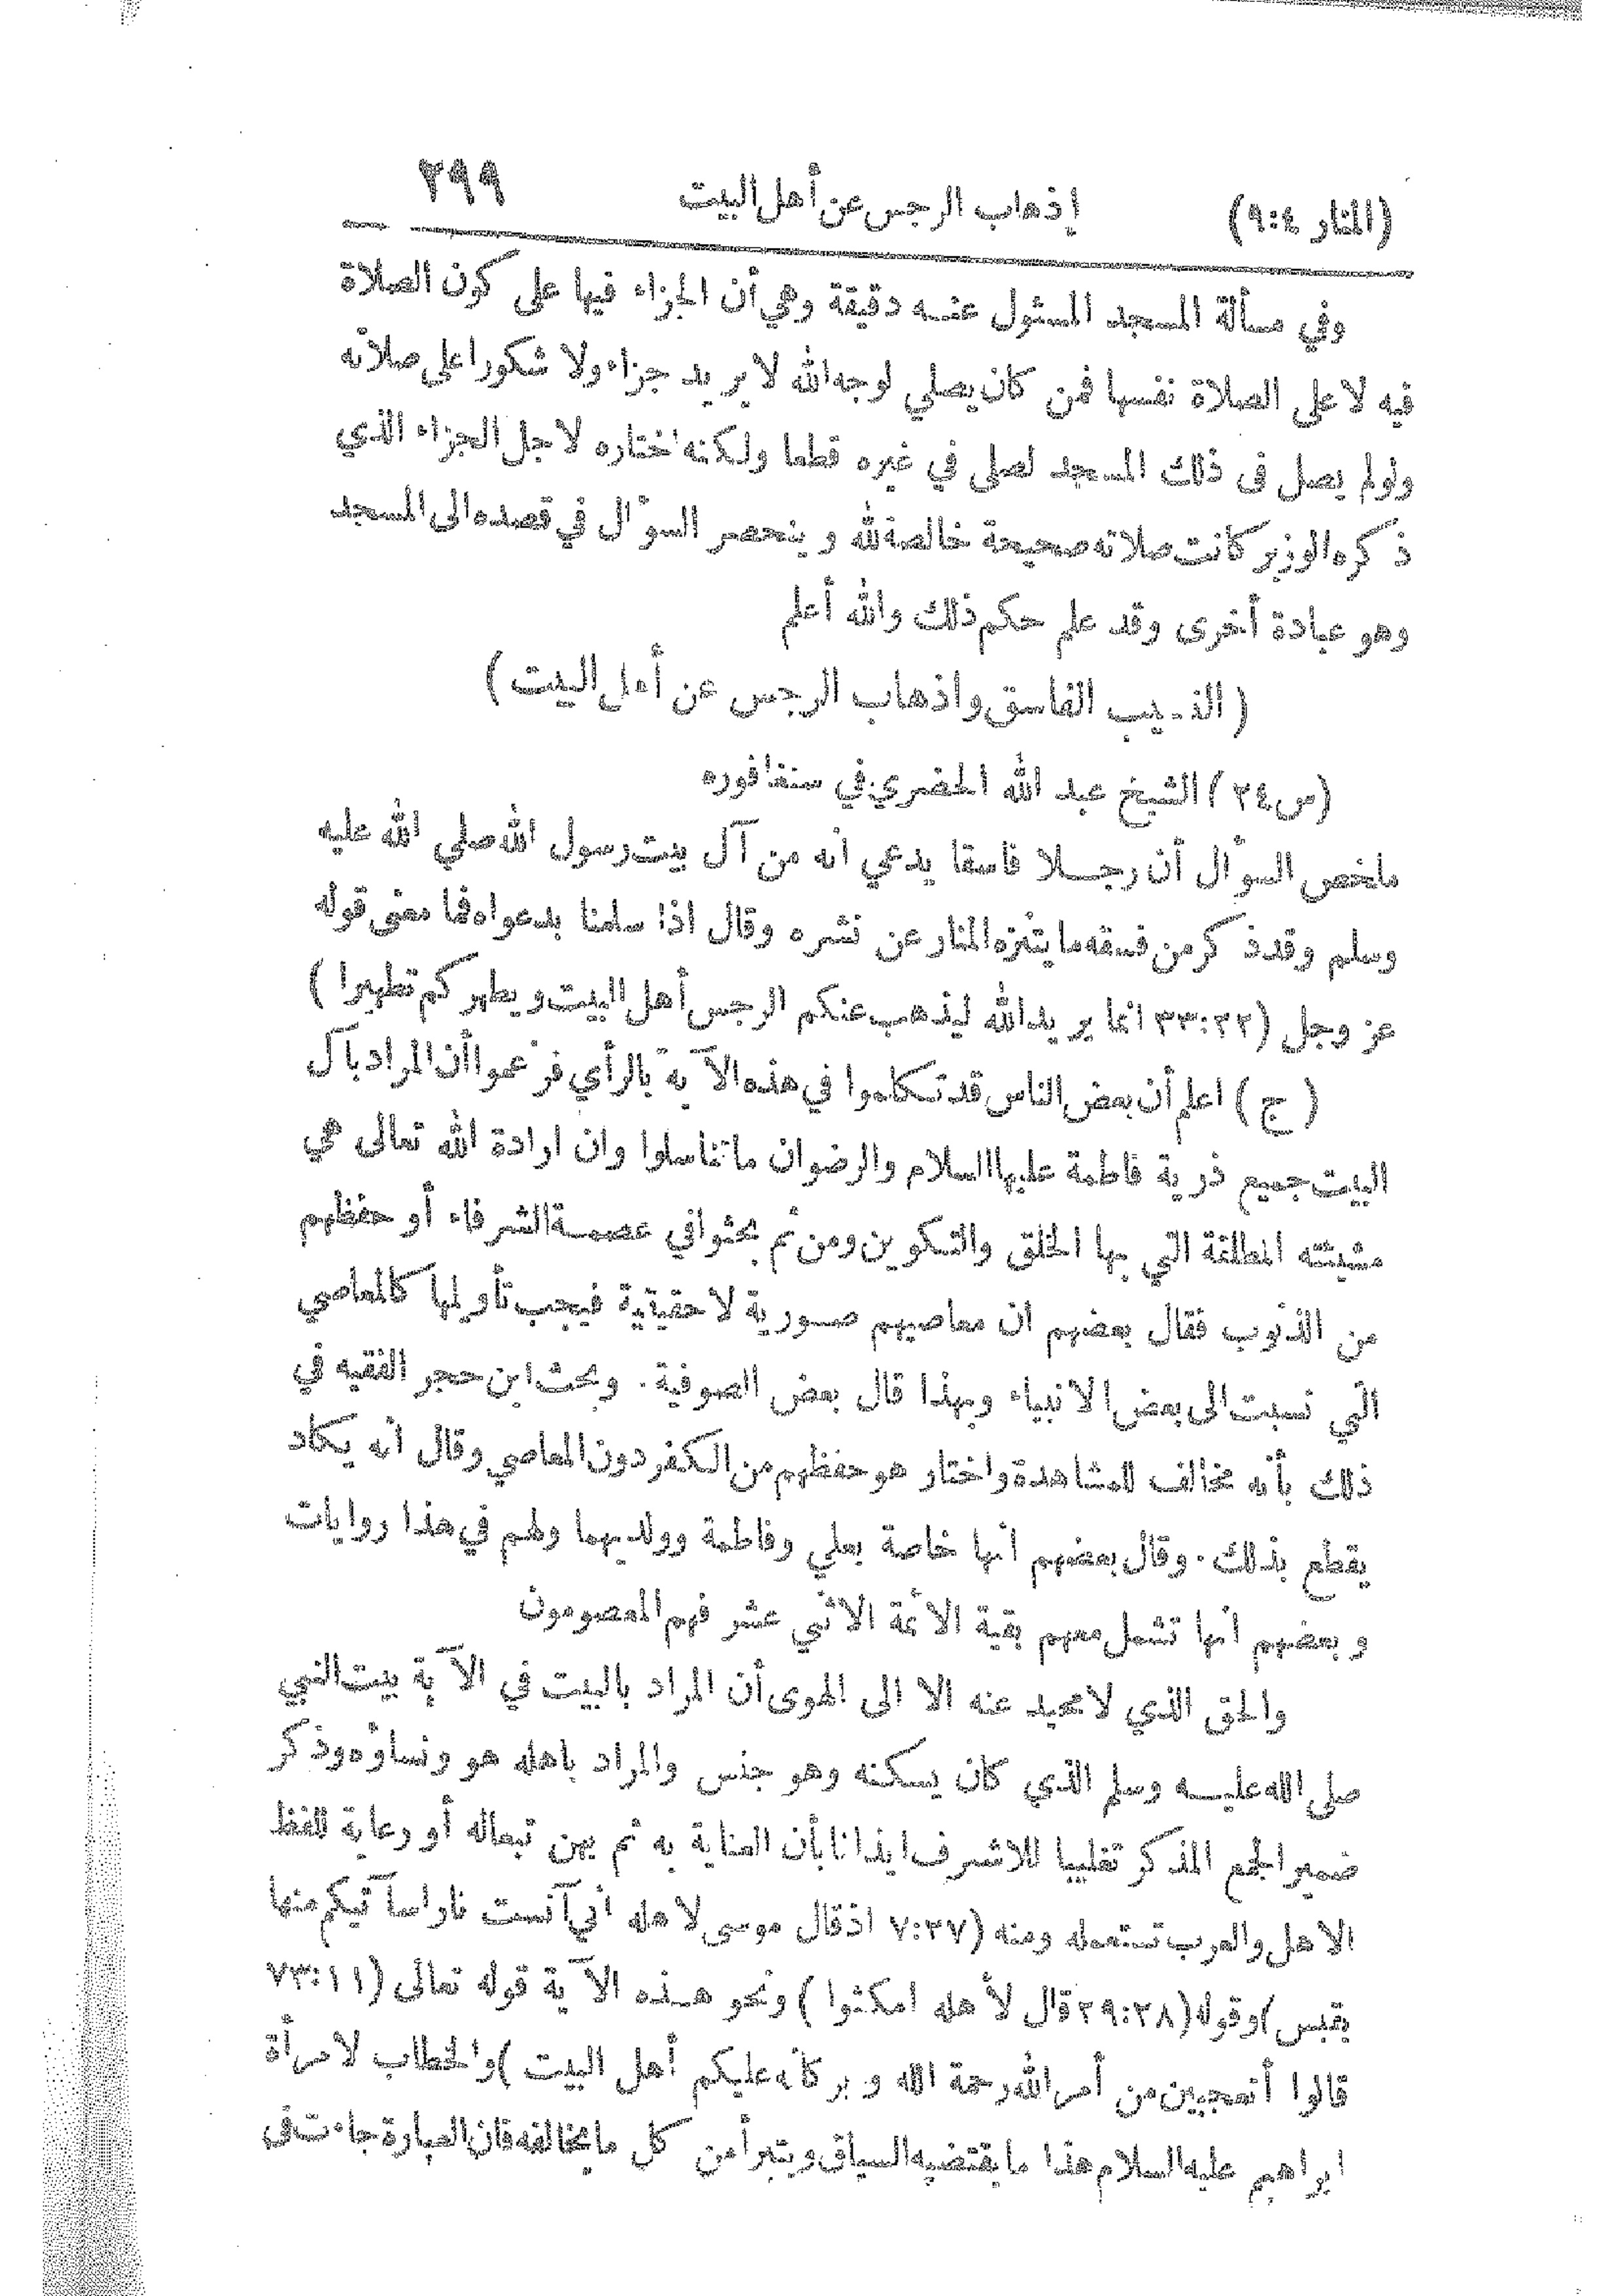 (المنار ٩:٤) إذهاب الرجس عن أهل البيت ٢٩٩
وفي مسألة المسجد المسئول عنه دقيقة وهي أن الجزاء فيها على كون الصلاة
فيه لا على الصلاة نفسها فمن كان يصلي لوجه الله لا يريد جزاء ولا شكورا على صلاته
ولو لم يصل في ذلك المسجد لصلى في غيره قطعا ولكنه اختاره لاجل الجزاء الذي
ذكره الوزير كانت صلاته صحيحة خالصة لله وينحصر السؤال في قصده الى المسجد
وهو عبادة أخرى وقد علم حكم ذلك والله أعلم
( الفاسق واذهاب الرجس عن أهل البيت )
(س٢٤) الشيخ عبد الله الحضري في سنغافوره
ملخص السؤال أن رجلا فاسقا يدعي انه من آل بيت رسول الله صلي الله عليه
وسلم وقد ذكر من فسقه ما يتنزه المنار عن نشره وقال اذا سلمنا بدعواه فما معنى قوله
عز وجل (٣٣:٣٢ انما يريد الله ليذهب عنكم الرجس أهل البيت ويطهركم تطهيرا )
( ج ) اعلم أن بعض الناس قد تكلموا في هذه الآية بالرأي فزعموا أن المراد بآل
البيت جميع ذرية فاطمة عليها السلام والرضوان ما تناسلوا وان ارادة الله تعالى هي
مشيئته المطلقة التي بها الخلق والتكوين ومن ثم بحثوا في عصمة الشرفاء أو حفظهم
من الذنوب فقال بعضهم ان معاصيهم صورية لا حقيقية فيجب تأويلها كالمعاصي
التي نسبت الى بعض الانبياء وبهذا قال بعض الصوفية. وبحث ابن حجر الفقيه في
ذلك بأنه مخالف للمشاهدة واختار هو حفظهم من الكفر دون المعاصي وقال انه يكاد
يقطع بذلك. وقال بعضهم انها خاصة بعلي وفاطمة وولديهما ولهم في هذا روايات
وبعضهم انها تشمل معهم بقية الائمة الاثني عشر فهم المعصومون
والحق الذي لا محيد عنه الا الى الهوى أن المراد بالبيت في الآية بيت النبي
صلى الله عليه وسلم الذي كان يسكنه وهو جنس والمراد باهله هو ونساؤه وذكر
ضمير الجمع المذكر تغليبا للاشرف ايذانا بأن العناية به ثم بهن تبعا له أو رعاية للفظ
الاهل والعرب تستعمله ومنه (٧:٢٧ اذ قال موسى لاهله اني آنست نارا سآتيكم منها
بقبس) وقوله (٢٩:٢٨ قال لأهله امكثوا ) ونحو هذه الآية قوله تعالى (٧٣:١١
قالوا أتعجبين من أمر الله رحمة الله وبركاته عليكم أهل البيت ) والخطاب لامرأة
ابراهيم عليه السلام هذا ما يقتضيه السياق ويتبرأ من كل ما يخالفه فان العبارة جاءت في